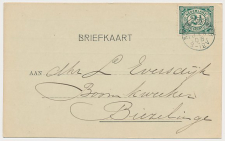 BRIEFKAART
AAN Dhr L Eversdijk
Boomkweeker
Biezelinge